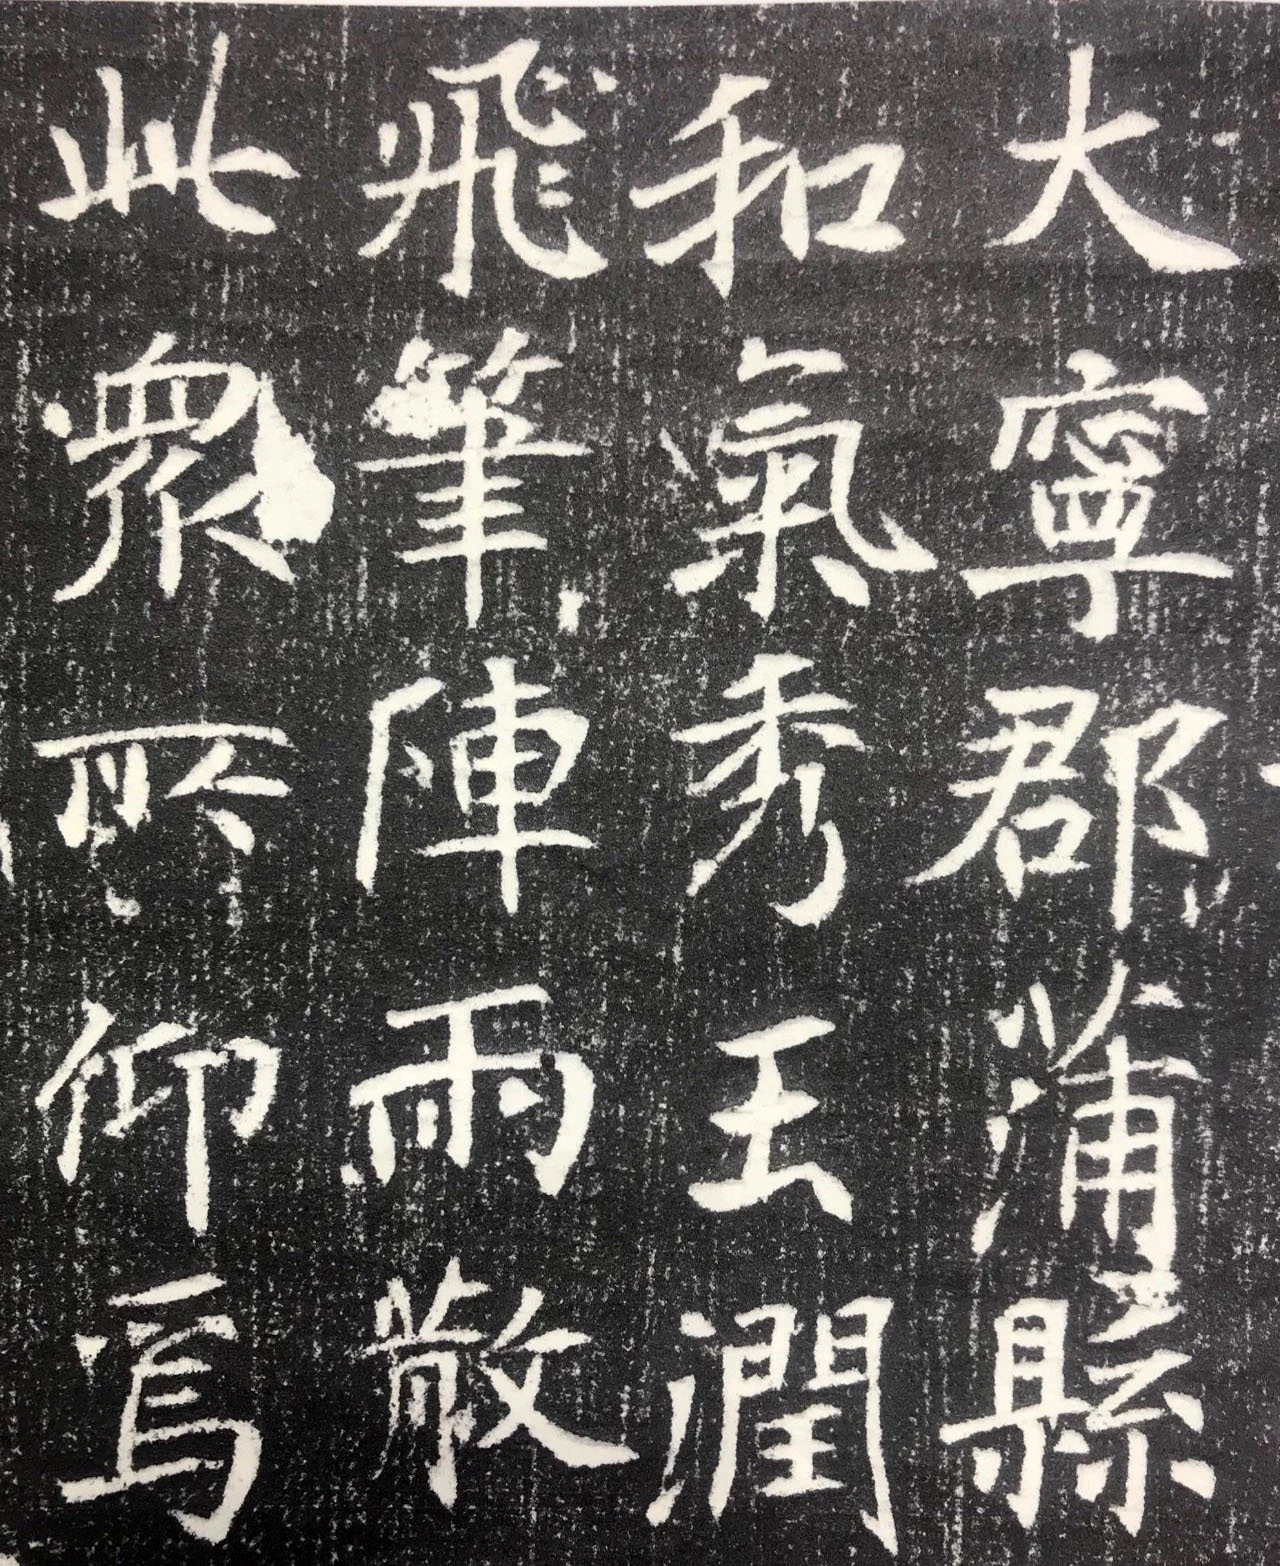 大寧郡蒲縣
和氣秀玉潤
飛筆陣雨散
此眾所仰焉